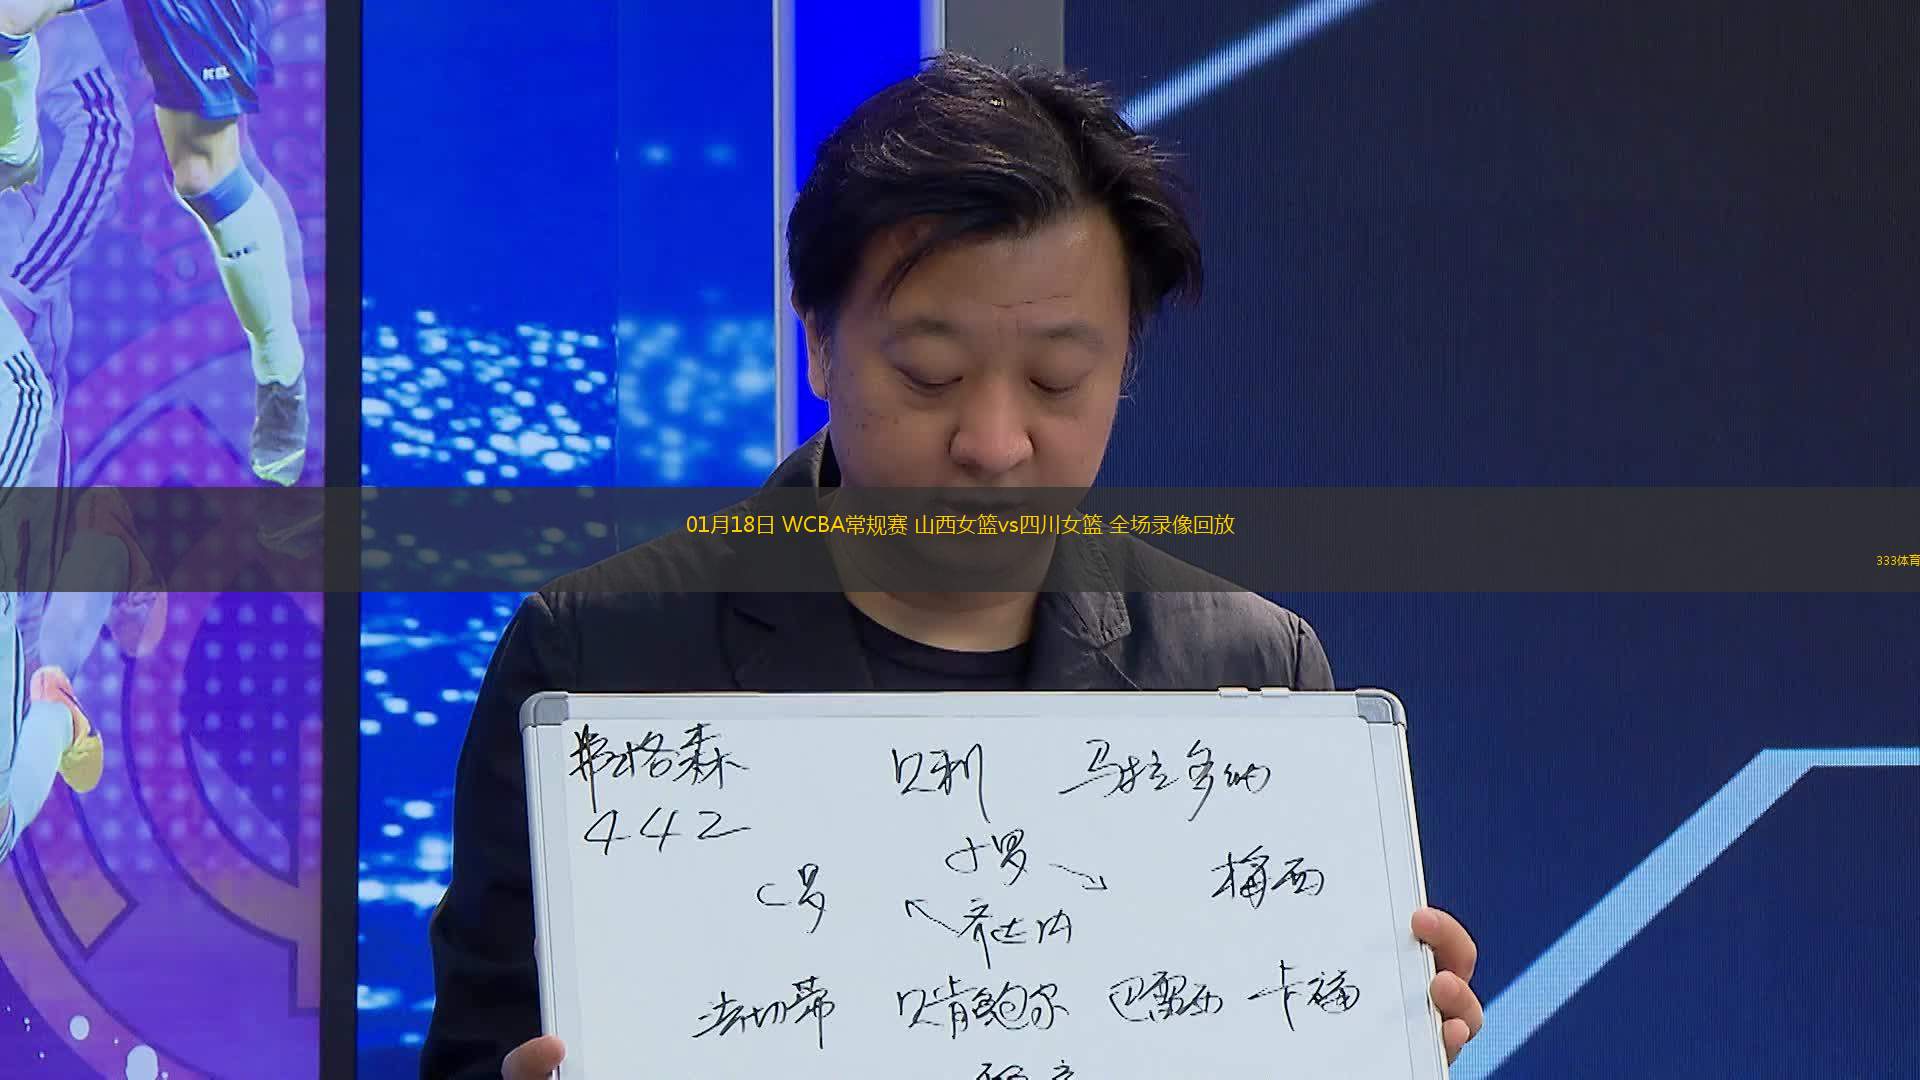 01月18日 WCBA常规赛 山西女篮vs四川女篮 全场录像回放
333体育
弗格森 贝利 马拉多纳
442
小罗
C罗 梅西
齐达内
法切蒂 贝肯鲍尔 巴雷西 卡福